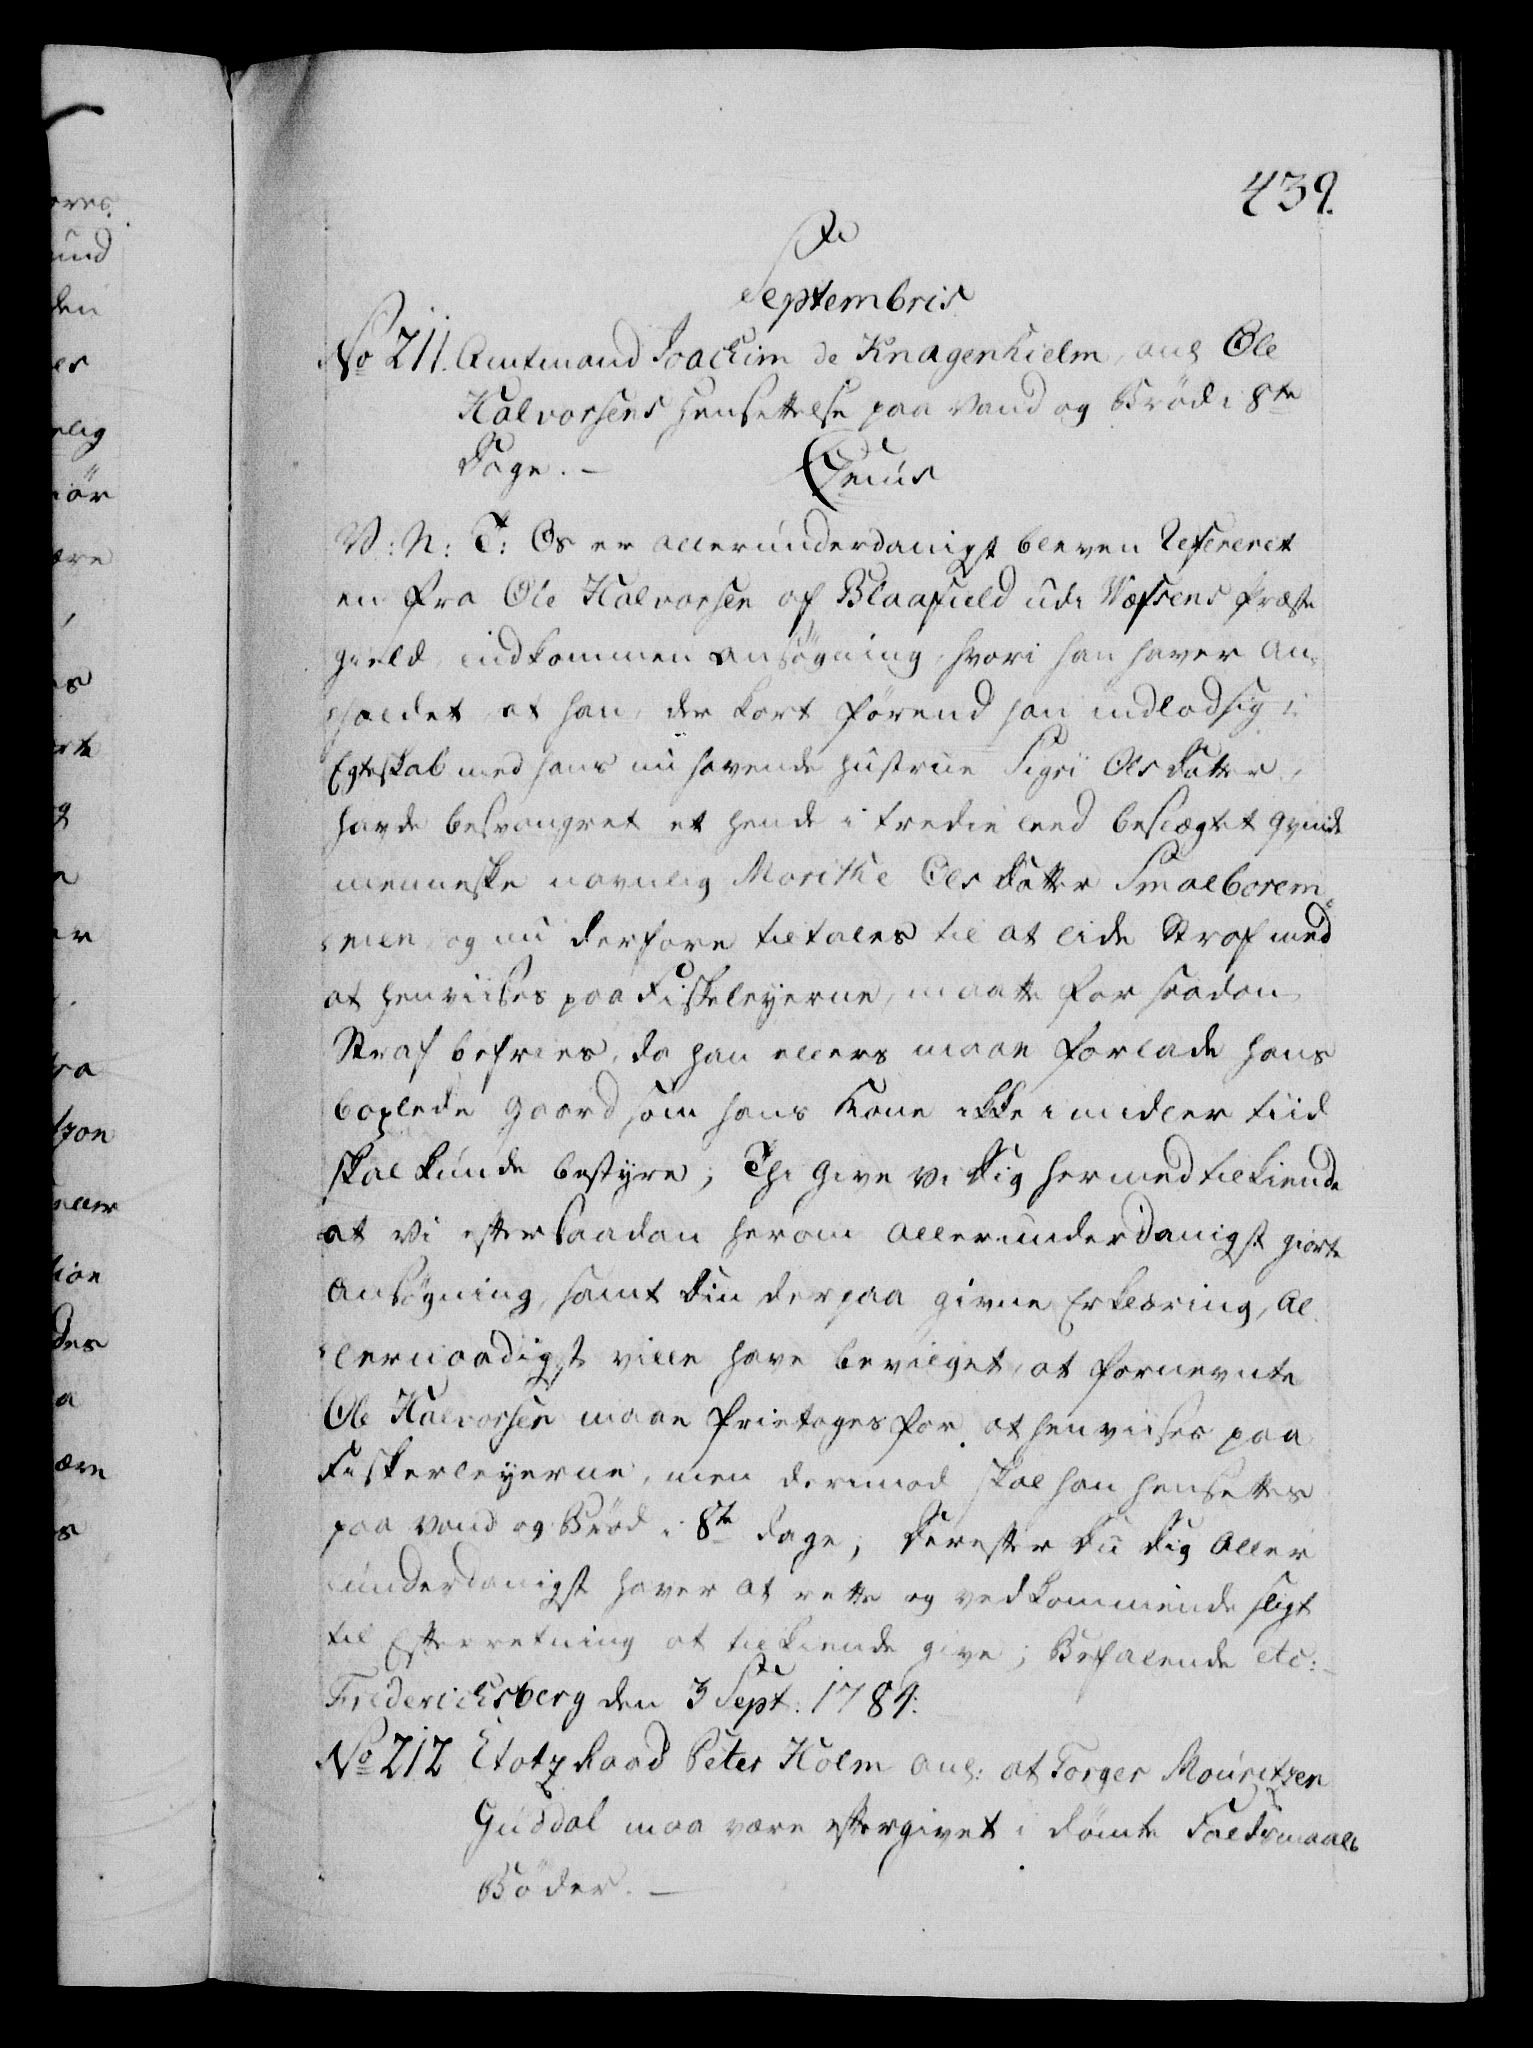 439.
Septembris
No 211. Amtmand Joachim de Knagenhielm, ang Ole
Halvorsens hensettelse paa Vand og Brød i 8te
Dage. –
V: N: T: Os er allerunderdanigst bleven Refereret
en fra Ole Halvorsen af Blaafield udi Wefsens Præste
gield indkommen ansøgning, hvori han haver an-
holdet at han, der kort førend han indlod sig i
Egteskab med hans nu havende hustrue Sigri Olsdatter,
havde besvangret et hende i tredie leed beslægtet qvinde
menneske navnlig Marithe Olsdatter Smalborem-
men og nu derfore tiltales til at lide Straf med
at henviises paa Fiskeleyerne, maatte for saadan
Straf befries, da han ellers maae forlade hans
boxlede gaard som hans Kone ikke imidler tiid
skal kunde bestyre; Thi Give Vi Dig hermed tilkiende
at Vi efter saadan herom allerunderdanigst giorte
ansøgning, samt Din derpaa givne Erklæring, Al-
lernaadigst ville have bevilget, at fornevnte
Ole Halvorsen maae frietages for at henviises paa
Fiskerleyerne, men derimod skal han hensettes
paa Vand og Brød i 8te Dage; Derefter Du Dig aller
underdanigst haver at rette og vedkommende sligt
til Efterretning at tilkiende give; Befalende etc:
Friderichsberg den 3 Sept: 1784.
No 212 Etatz Raad Peter Holm ang: at Torger Mouritzen
Guddal maa være eftergivet i dømte Faldsmaals
Bøder. –
ores.
und
den
es
elig
iör
ære
,
es
rte
g
er
ra
zon
eller
tion
des
a
ære
s